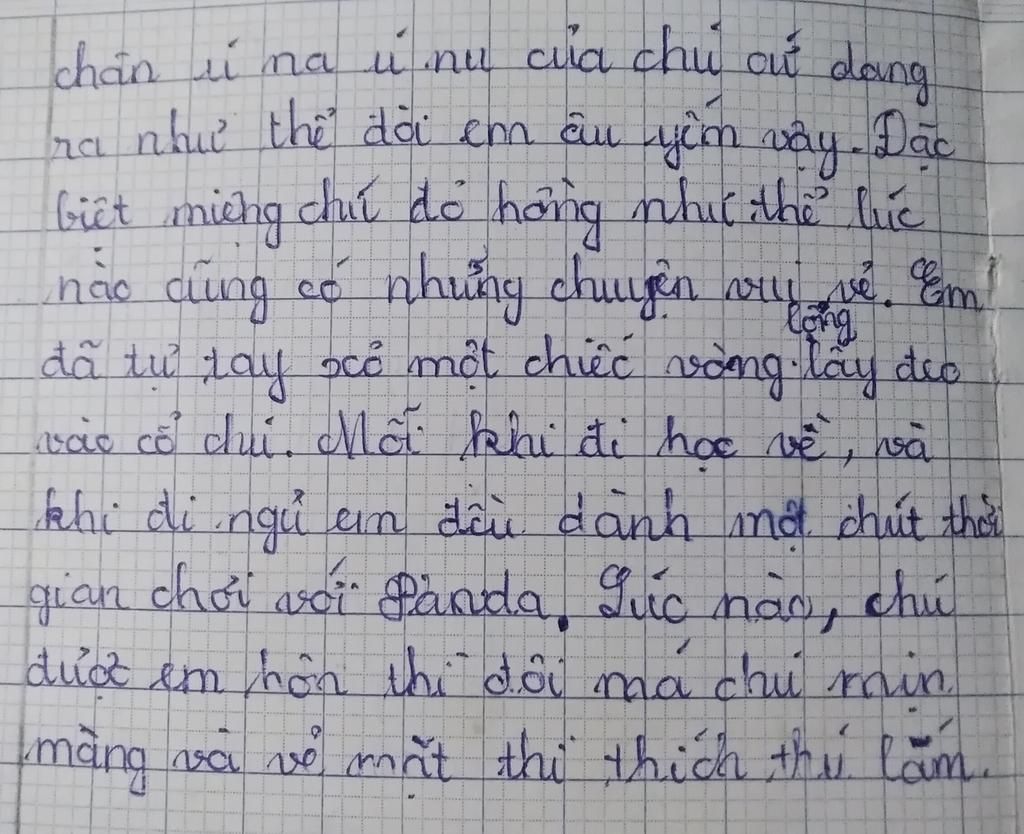 chân ú na ú nu của chú cứ dang
ra như thể đòi em âu yếm vậy. Đặc
biệt miệng chú đỏ hồng như thể lúc
nào cũng có những chuyện vui vẻ. Em
lông
đã tự tay xỏ một chiếc vòng lấy đeo
vào cổ chú. Mỗi khi đi học về, và
khi đi ngủ em đều dành một chút thời
gian chơi với Panda. Lúc nào, chú
được em hôn thì đôi má chú mịn
màng và vẻ mặt thì thích thú lắm.